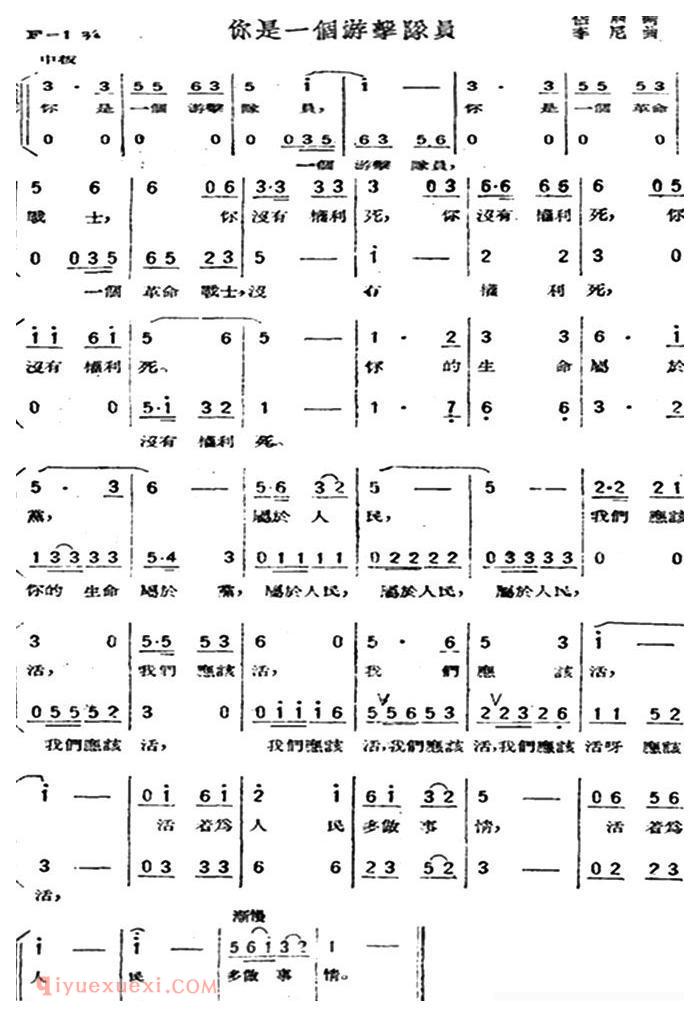 你是一個游擊隊員
F-1 2/4
中板
3 · 3 55 63 5 i i — 3 · 3 55 63
你 是 一個 游擊 隊 員, 你 是 一個 革命
0 0 0 0 0 035 63 56 0 0 0 0
一個 游擊 隊員,
5 6 6 06 3·3 33 3 03 6·6 66 6 05
戰 士, 你 沒有 權利 死, 你 沒有 權利 死, 你
0 035 65 23 5 — i — 2 2 3 0
一個 革命 戰士,沒 有 權 利 死,
i i 6i 5 6 5 — 1 · 2 3 3 6 · i
沒有 權利 死、 你 的 生 命 屬 於
0 0 5·i 32 1 — 1 · 7 6 6 3 · 2
沒有 權利 死、
5 · 3 6 — 5·6 32 5 — 5 — 2·2 21
黨, 屬於 人 民, 我們 應該
13333 5·4 3 01111 02222 03333 0 0
你的 生命 屬於 黨, 屬於人民, 屬於人民, 屬於人民,
3 0 5·5 53 6 0 5 · 6 5 3 i —
活, 我們 應該 活, 我 們 應 該 活,
05552 3 0 0iii6 55653 22326 11 52
我們應該 活, 我們應該 活,我們應該 活,我們應該 活呀 應該
i — 0i 6i 2 i 6i 32 5 — 06 56
活 着為 人 民 多做 事 情, 活 着為
3 — 03 33 6 6 23 52 3 — 03 33
活,
漸慢
i — i — 56i32 1 —
人 民 多做 事 情。
qiyuexuexi.com